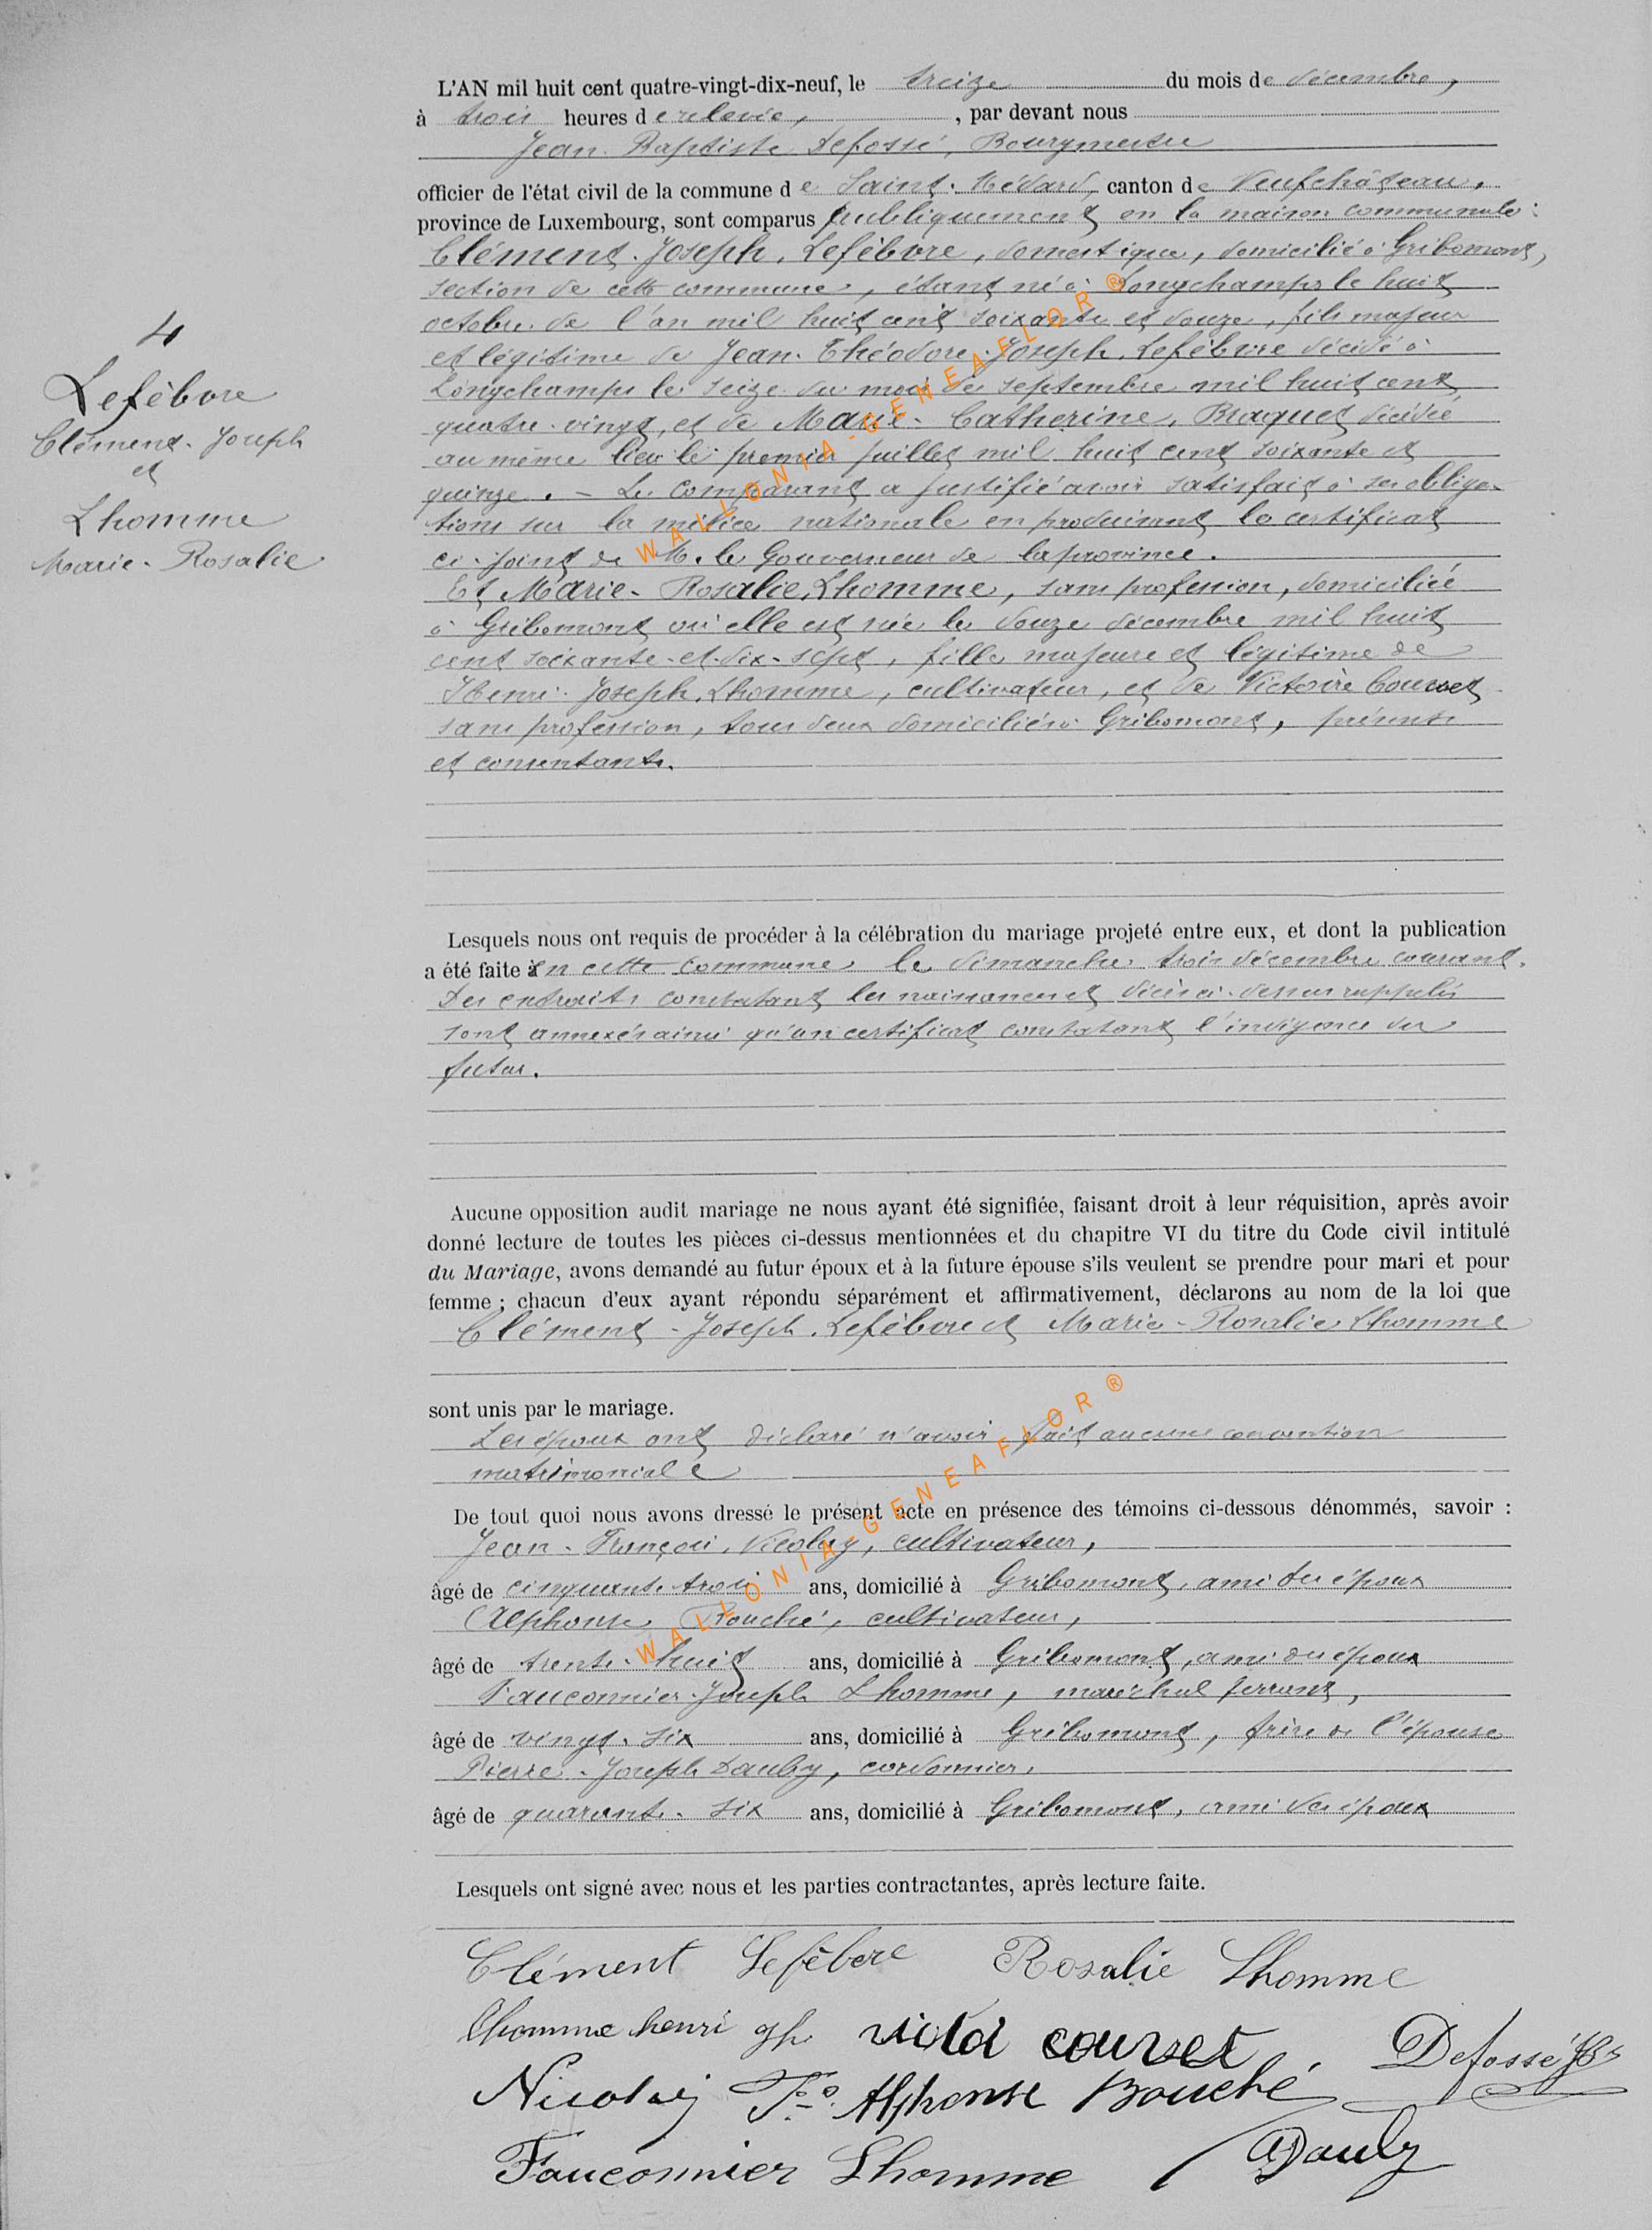 L'AN mil huit cent quatre-vingt-dix-neuf, le treize du mois de décembre,
à trois heures de relevée, , par devant nous
Jean-Baptiste Defossé, Bourgmestre
officier de l'état civil de la commune de Saint-Médard, canton de Neufchâteau,
province de Luxembourg, sont comparus publiquement en la maison communale :
Clément-Joseph Lefèbvre, domestique, domicilié à Gribomont,
section de cette commune, étant né à Longchamps le huit
octobre de l'an mil huit cent soixante et douze, fils majeur
et légitime de Jean-Théodore-Joseph Lefèbvre décédé à
Longchamps le seize du mois de septembre mil huit cent
quatre-vingt, et de Marie-Catherine Braquet décédée
au même lieu le premier juillet mil huit cent soixante et
quinze. – Le comparant a justifié avoir satisfait à ses obliga-
tions sur la milice nationale en produisant le certificat
ci-joint de M. le Gouverneur de la province.
Et Marie-Rosalie Lhomme, sans profession, domiciliée
à Gribomont où elle est née le douze décembre mil huit
cent soixante-et-dix-sept, fille majeure et légitime de
Henri-Joseph Lhomme, cultivateur, et de Victoire Courset
sans profession, tous deux domiciliés à Gribomont, présents
et consentants.
4
Lefèbvre
Clément-Joseph
et
Lhomme
Marie-Rosalie
Lesquels nous ont requis de procéder à la célébration du mariage projeté entre eux, et dont la publication
a été faite en cette commune le dimanche trois décembre courant.
Des extraits constatant les naissances et décès ci-dessus rappelés
sont annexés ainsi qu'un certificat constatant l'indigence du
futur.
Aucune opposition audit mariage ne nous ayant été signifiée, faisant droit à leur réquisition, après avoir
donné lecture de toutes les pièces ci-dessus mentionnées et du chapitre VI du titre du Code civil intitulé
du Mariage, avons demandé au futur époux et à la future épouse s'ils veulent se prendre pour mari et pour
femme ; chacun d'eux ayant répondu séparément et affirmativement, déclarons au nom de la loi que
Clément-Joseph Lefèbvre et Marie-Rosalie Lhomme
sont unis par le mariage.
Les époux ont déclaré n'avoir fait aucune convention
matrimoniale
De tout quoi nous avons dressé le présent acte en présence des témoins ci-dessous dénommés, savoir :
Jean-François Nicolay, cultivateur,
âgé de cinquante-trois ans, domicilié à Gribomont, ami des époux
Alphonse Bouché, cultivateur,
âgé de trente-huit ans, domicilié à Gribomont, ami des époux
Fauconnier-Joseph Lhomme, maréchal ferrant,
âgé de vingt-six ans, domicilié à Gribomont, frère de l'épouse
Pierre-Joseph Dauby, cordonnier,
âgé de quarante-six ans, domicilié à Gribomont, ami des époux
Lesquels ont signé avec nous et les parties contractantes, après lecture faite.
Clément Lefèbvre Rosalie Lhomme
Lhomme henri victoi courset Defossé JBte
Nicolay Alphonse Bouché
Fauconnier Lhomme Dauby
WALLONIA-GENEAFLOR ®
WALLONIA-GENEAFLOR ®